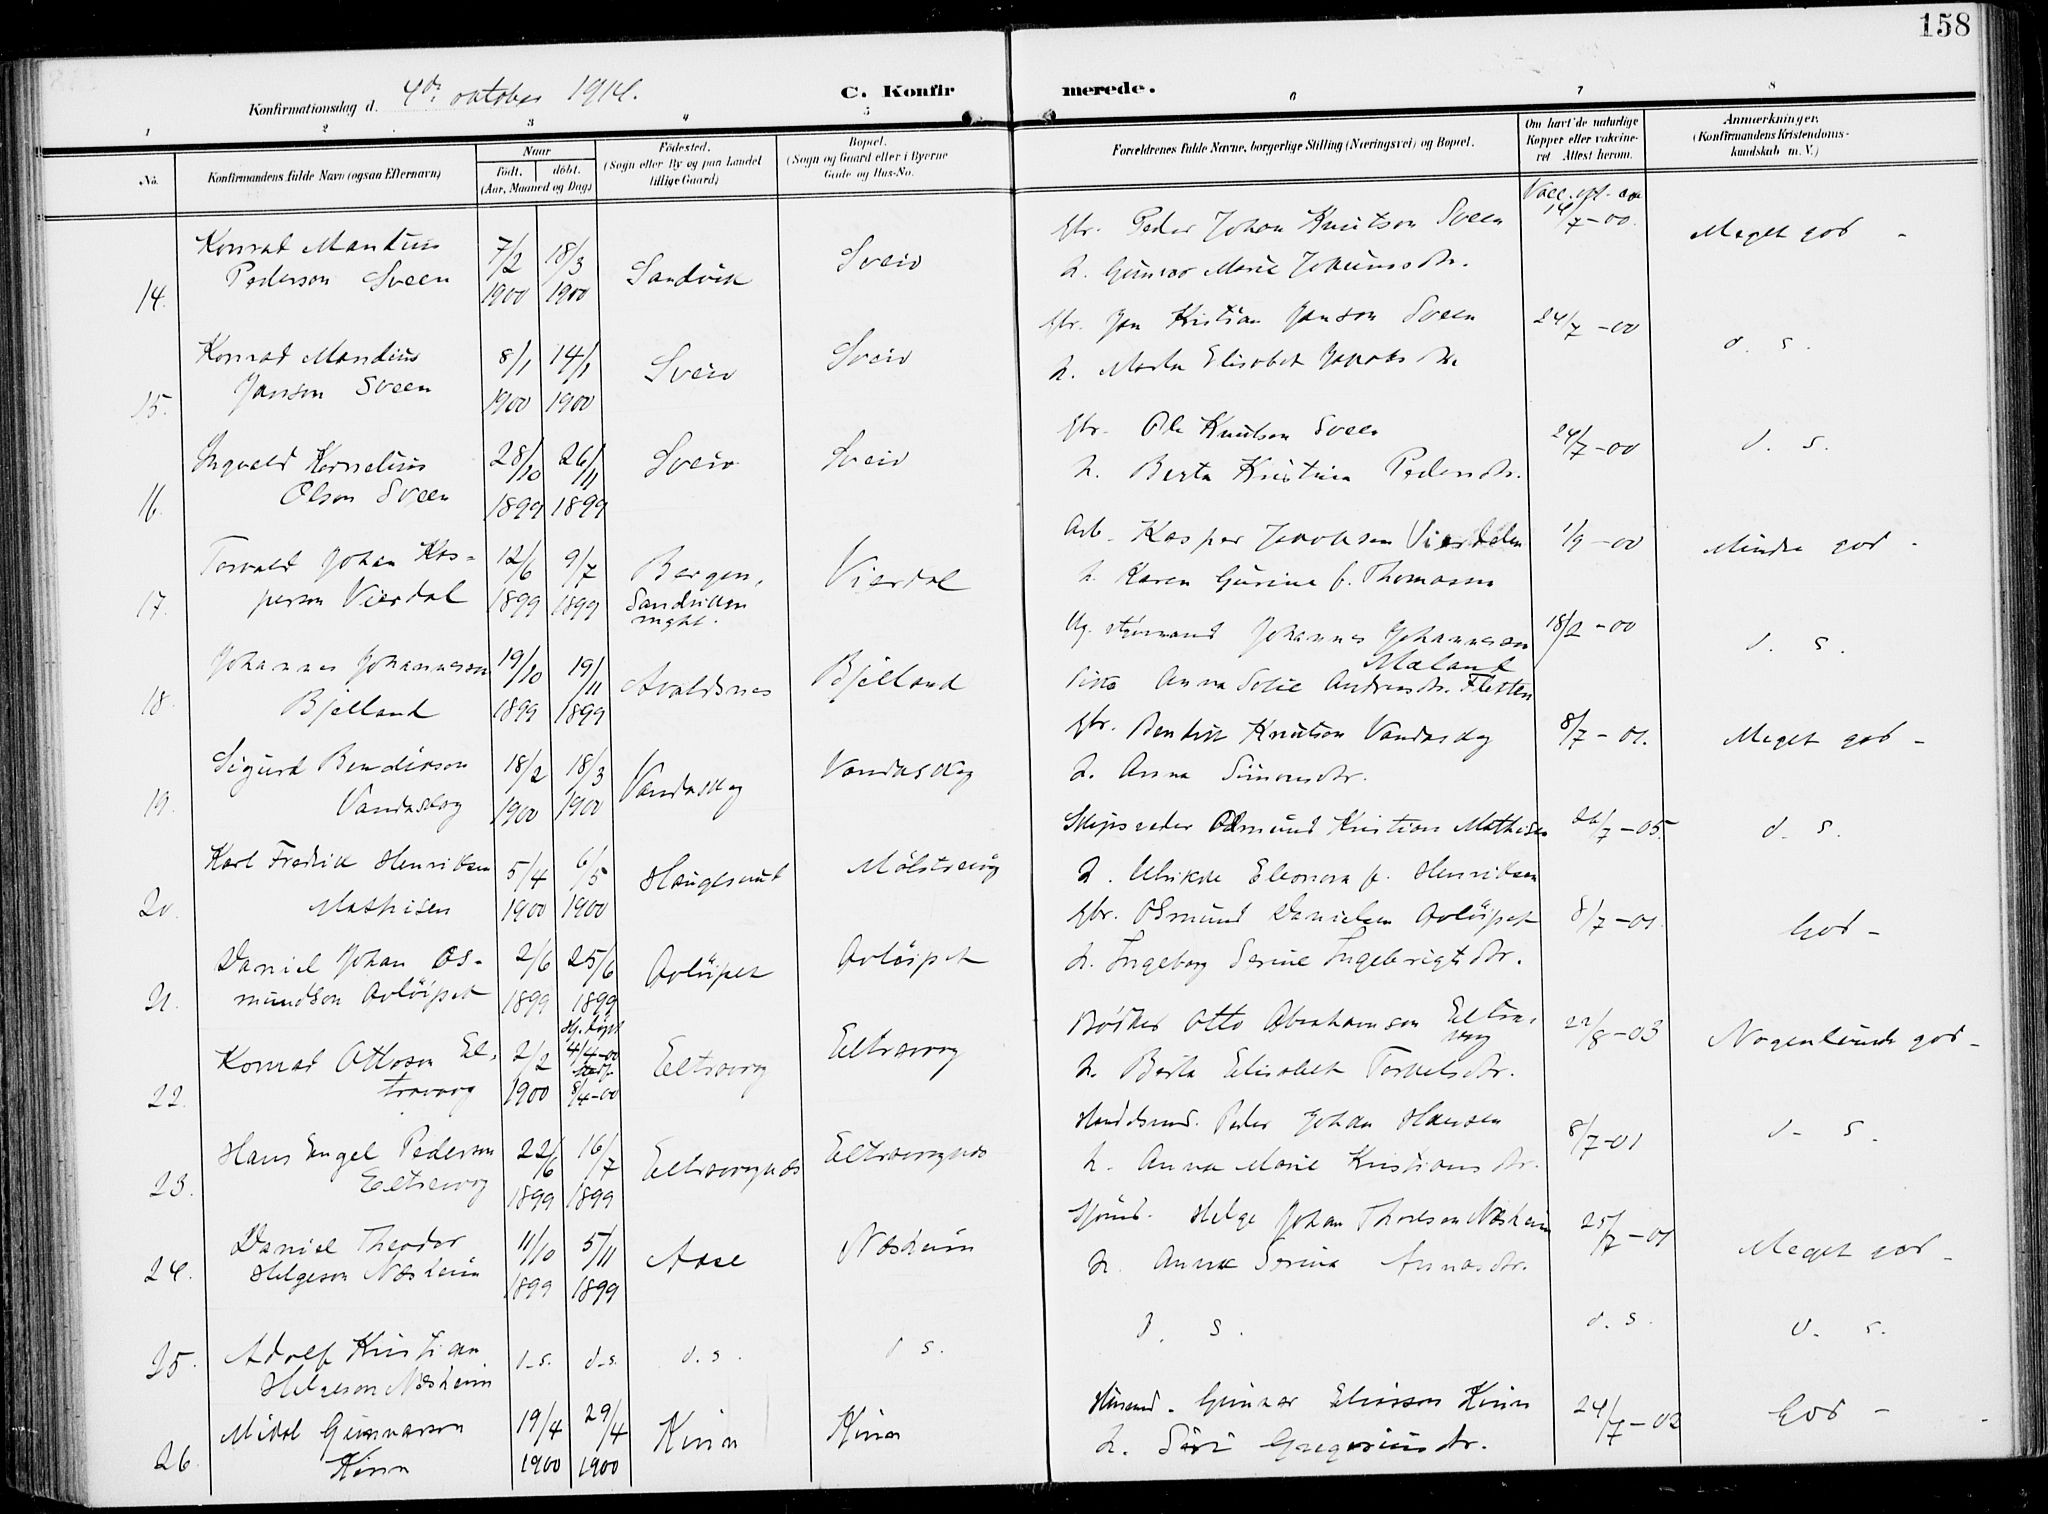 158
Konfirmationsdag d. 4de oktober 1914.
C. Konfirmerede.
1 2 3 4 5 6 7 8
No.
Konfirmandens fulde Navn (ogsaa Efternavn)
Naar
født. døbt.
(Aar, Maaned og Dag)
Fødested.
(Sogn eller By og paa Landet
tillige Gaard)
Bopæl.
(Sogn og Gaard eller i Byerne
Gade og Hus-No.
Forældrenes fulde Navne, borgerlige Stilling (Næringsvei) og Bopæl.
Om havt de naturlige
Kopper eller vakcine-
ret Attest herom.
Anmærkninger.
(Konfirmandens Kristendoms-
kundskab m. V.)
14. Konrad Mandius
Pederson Sveen
7/2 1900
18/3 1900
Sandvik
Sveio
Gbr. Peder Johan Knutson Sveen
h. Gunvor Marie Johannsdtr.
14/7-00.
Meget god -
15. Konrad Mandius
Janson Sveen
8/1 1900
14/1 1900
Sveio
Sveio
Gbr. Jan Kristian Janson Sveen
h. Marta Elisabet Jakobsdtr
24/7-00
d. s.
16. Ingvald Kornelius
Olson Sveen
28/10 1899
26/11 1899
Sveio
Sveio
Gbr. Ole Knutson Sveen
h. Berta Kristina Pedersdtr.
24/7-00
d. s.
17. Torvald Johan Kas-
person Vierdal
12/6 1899
9/7 1899
Bergen,
Sandviken
mght.
Vierdal
Arb. Kasper Jakobsen Vierdalen
h. Karen Gurine f. Thomassen
1/9-00
Mindre god -
18. Johannes Johanneson
Bjelland
19/10 1899
19/11 1899
Avaldsnes
Bjelland
Ug. styrmand Johannes Johanneson
Mæland
Pike Anna Sofie Andreasdtr. Fletten
18/2-00
d. s.
19. Sigurd Bendikson
Vandaskog
18/2 1900
18/3 1900
Vandaskog
Vandaskog
Gbr. Bendik Knutson Vandaskog
h. Anna Simonsdtr.
8/7-01.
Meget god -
20. Karl Fredrik Henriksen
Mathisen
5/4 1900
6/5 1900
Haugesund
Mølstrevåg
Skipsreder Osmund Kristian Mathisen
h. Ulrikke Eleonora f. Henriksen
26/7-05.
d. s.
21. Daniel Johan Os-
mundson Avløipet
2/6 1899
25/6 1899
Avløipet
Avløipet
Gbr. Osmund Danielsen Avløipet
h. Ingeborg Serine Ingebrigtsdtr.
8/7-01.
God -
22. Konrad Ottoson El-
travaag
2/2 1900
Hj. døpt
4/4-00
8/4-00
Eltravog
Eltravog
Bødker Otto Abrahamson Eltra-
vog
h. Berta Elisabet Torkelsdtr.
22/8-03
Nogenlunde god -
23. Hans Engel Pederson
Eltravog
22/6 1899
16/7 1899
Eltravognes
Eltravognes
Handelsmd. Peder Johan Hansen
h. Anna Marie Kristiansdtr.
8/7-01
d. s.
24. Daniel Theodor
Helgeson Næsheim
11/10 1899
5/11 1899
Aase
Næsheim
Sjømd. Helge Johan Thoreson Næsheim
h. Anna Serina Aanensdtr.
25/7-01
Meget god -
25. Adolf Kristian
Helgeson Næsheim
d. s. d. s. d. s. d. s.
d. s.
d. s.
d. s.
26. Mikal Gunnarson
Kinn
19/4 1900
29/4 1900
Kinn
Kinn
Husmd. Gunnar Eliasson Kinn
h. Siri Gregoriusdtr.
24/7-02
God -